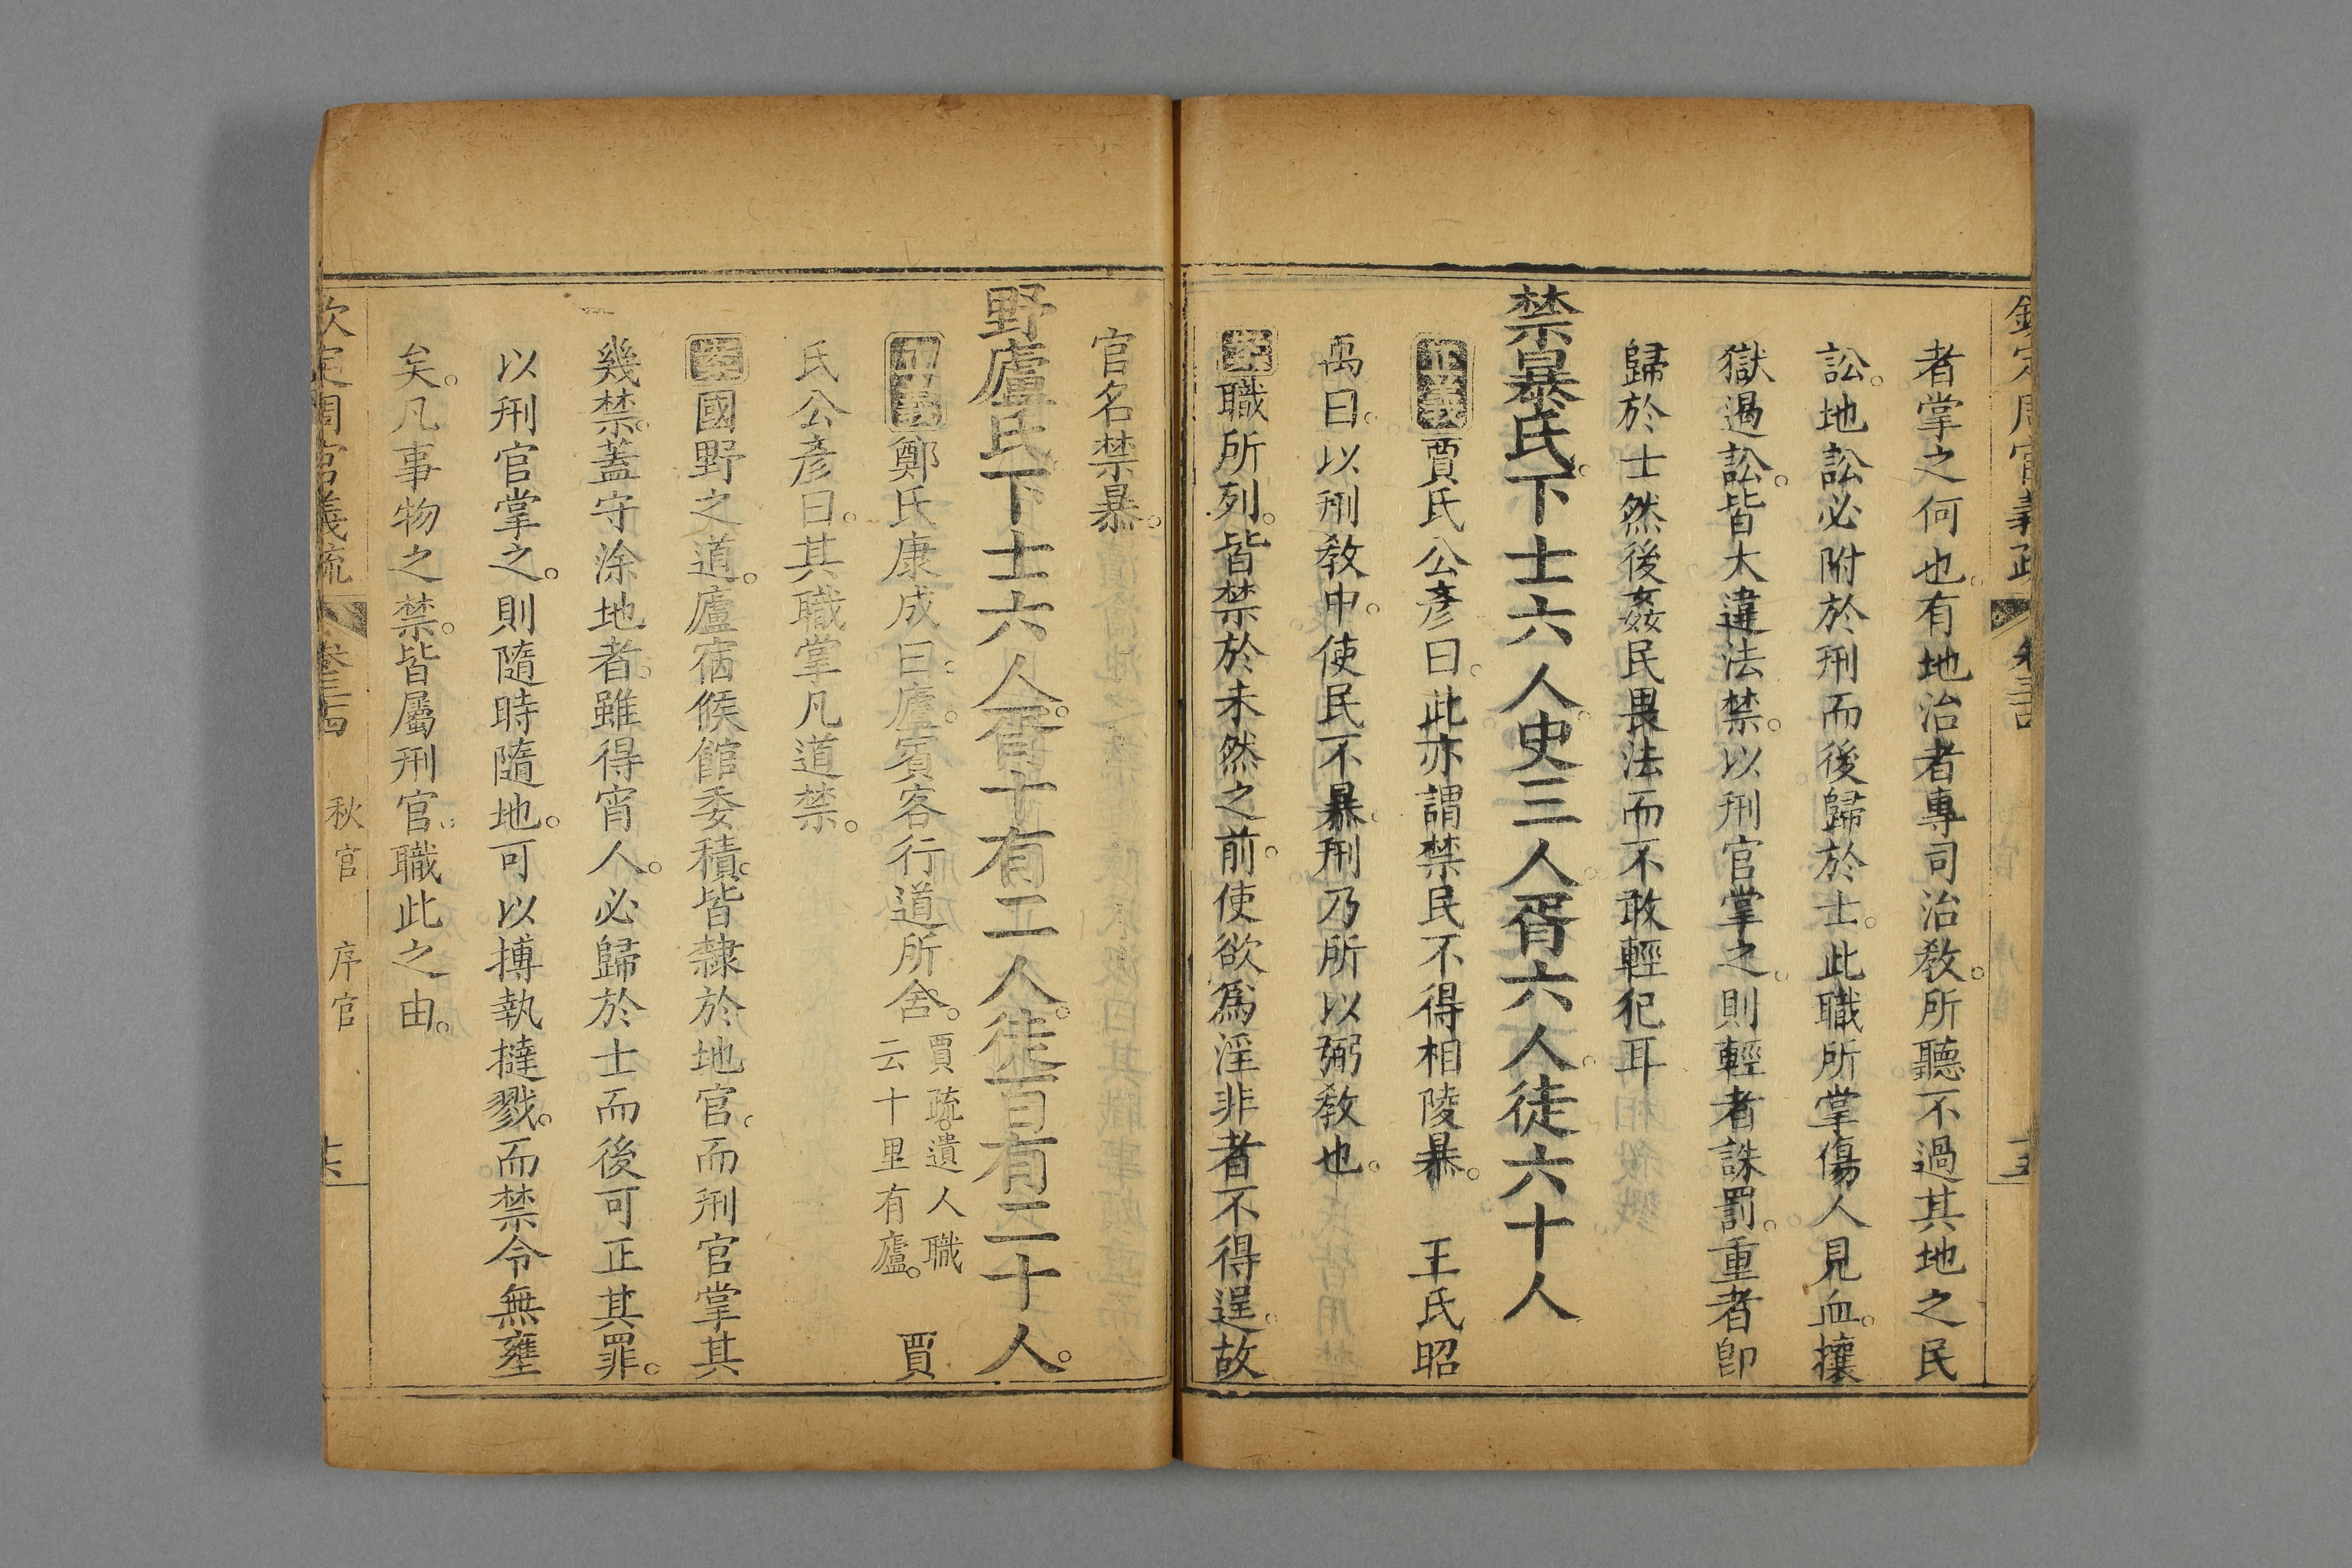 者掌之何也。有地治者專司治敎。所聽不過其地之民
訟。地訟必附於刑而後歸於士。此職所掌傷人見血。攘
獄遏訟。皆大違法禁。以刑官掌之。則輕者誅罰。重者卽
歸於士然後姦民畏法而不敢輕犯耳
禁暴氏。下士六人。史三人。胥六人。徒六十人
正義賈氏公彥曰。此亦謂禁民不得相陵暴。 王氏昭
禹曰。以刑敎中。使民不暴。刑乃所以弼敎也。
案職所列。皆禁於未然之前。使欲爲淫非者不得逞。故
官名禁暴。
野廬氏下士六人。胥十有二人。徒百有二十人。
正義鄭氏康成曰。廬。賓客行道所舍。賈疏。遺人職
云十里有廬。 賈
氏公彥曰。其職掌凡道禁。
案國野之道。廬宿候館委積。皆隸於地官。而刑官掌其
幾禁。蓋守涂地者。雖得宵人。必歸於士而後可正其罪。
以刑官掌之。則隨時隨地。可以搏執撻戮。而禁令無壅
矣。凡事物之禁。皆屬刑官。職此之由。
欽定周官義疏 卷三十四 秋官 序官 十六